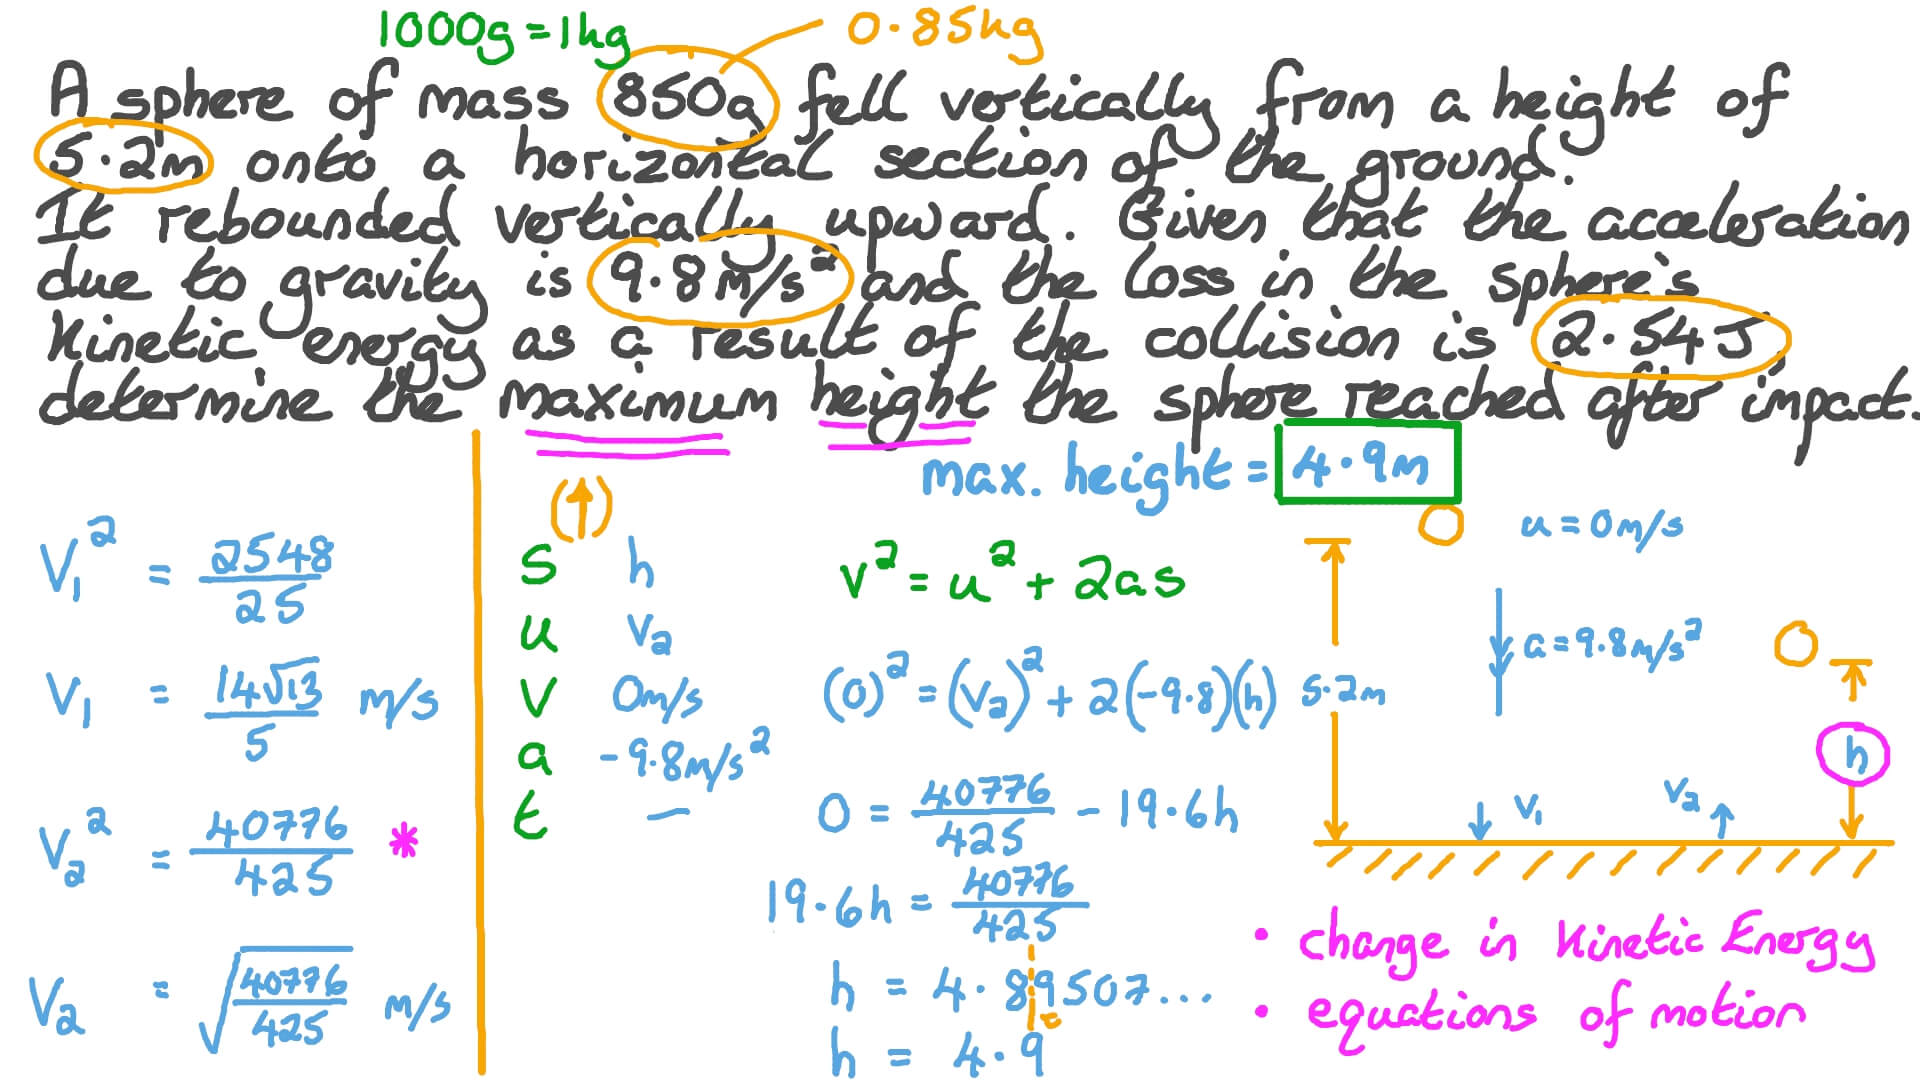 1000g = 1kg
0.85kg
A sphere of mass 850g fell vertically from a height of
5.2m onto a horizontal section of the ground.
It rebounded vertically upward. Given that the acceleration
due to gravity is 9.8m/s² and the loss in the sphere's
kinetic energy as a result of the collision is 2.54J,
determine the maximum height the sphere reached after impact.
max. height = 4.9m
V₁² = 2548/25
V₁ = 14√13/5 m/s
V₂² = 40776/425 *
V₂ = √(40776/425) m/s
(↑)
s h
u V₂
v 0m/s
a -9.8m/s²
t —
v² = u² + 2as
(0)² = (V₂)² + 2(-9.8)(h)
0 = 40776/425 - 19.6h
19.6h = 40776/425
h = 4.89507...
h = 4.9
u = 0m/s
a = 9.8m/s²
5.2m
h
V₁
V₂
• change in Kinetic Energy
• equations of motion